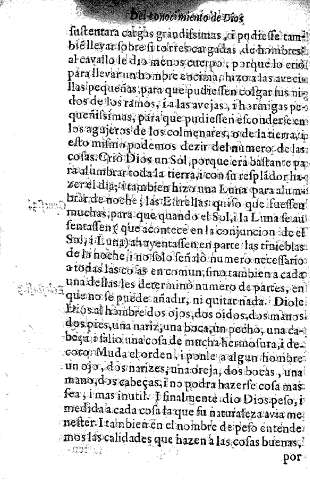 Del conocimiento de Dios
sustentara cargas grandissimas, i pudiesse tam-
bië llevar sobre si torres cargadas, de hombres:
al cavallo le dio menos cuerpo, porque lo crio
para llevar un hombre encima, hizo a las aveci-
llas pequeñas, para que pudiessen colgar sus ni-
dos de los ramos, i a las avejas, i hormigas pe-
queñissimas, para que pudiessen esconderse en
los agujeros de los colmenares, o de la tierra, i
esto mismo podemos dezir del numero de las
cosas. Criò Dios un Sol, porque era bastante pa-
ra alumbrar toda la tierra, i con su resplãdor ha-
zer el dia; i tambien hizo una Luna para alum-
brar de noche; las Estrellas quiso que fuessen
muchas, para que quando el Sol, i la Luna se au-
sentassen (que acontece en la conjuncion de el
Sol, i Luna) ahuyentassen en parte las tinieblas
de la noche, i no solo señalò numero necessario
a todas las cosas en comun, sino tambien a cada
una destas les determinò numero de partes, en
que no se puede añadir, ni quitar nada. Diole
Dios al hombre dos ojos, dos oidos, dos manos,
dos pies, una nariz, una boca, un pecho, una ca-
beça, i saliò una cosa de mucha hermosura, i de-
coro. Muda el orden, i ponle a algun hombre
un ojo, dos narizes, una oreja, dos bocas, una
mano, dos cabeças, i no podra hazerse cosa mas
fea, i mas inutil. I finalmente dio Dios peso, i
medida a cada cosa la que su naturaleza avia me-
nester. I tambien en el nombre de peso entende
mos las calidades que hazen a las cosas buenas,
por